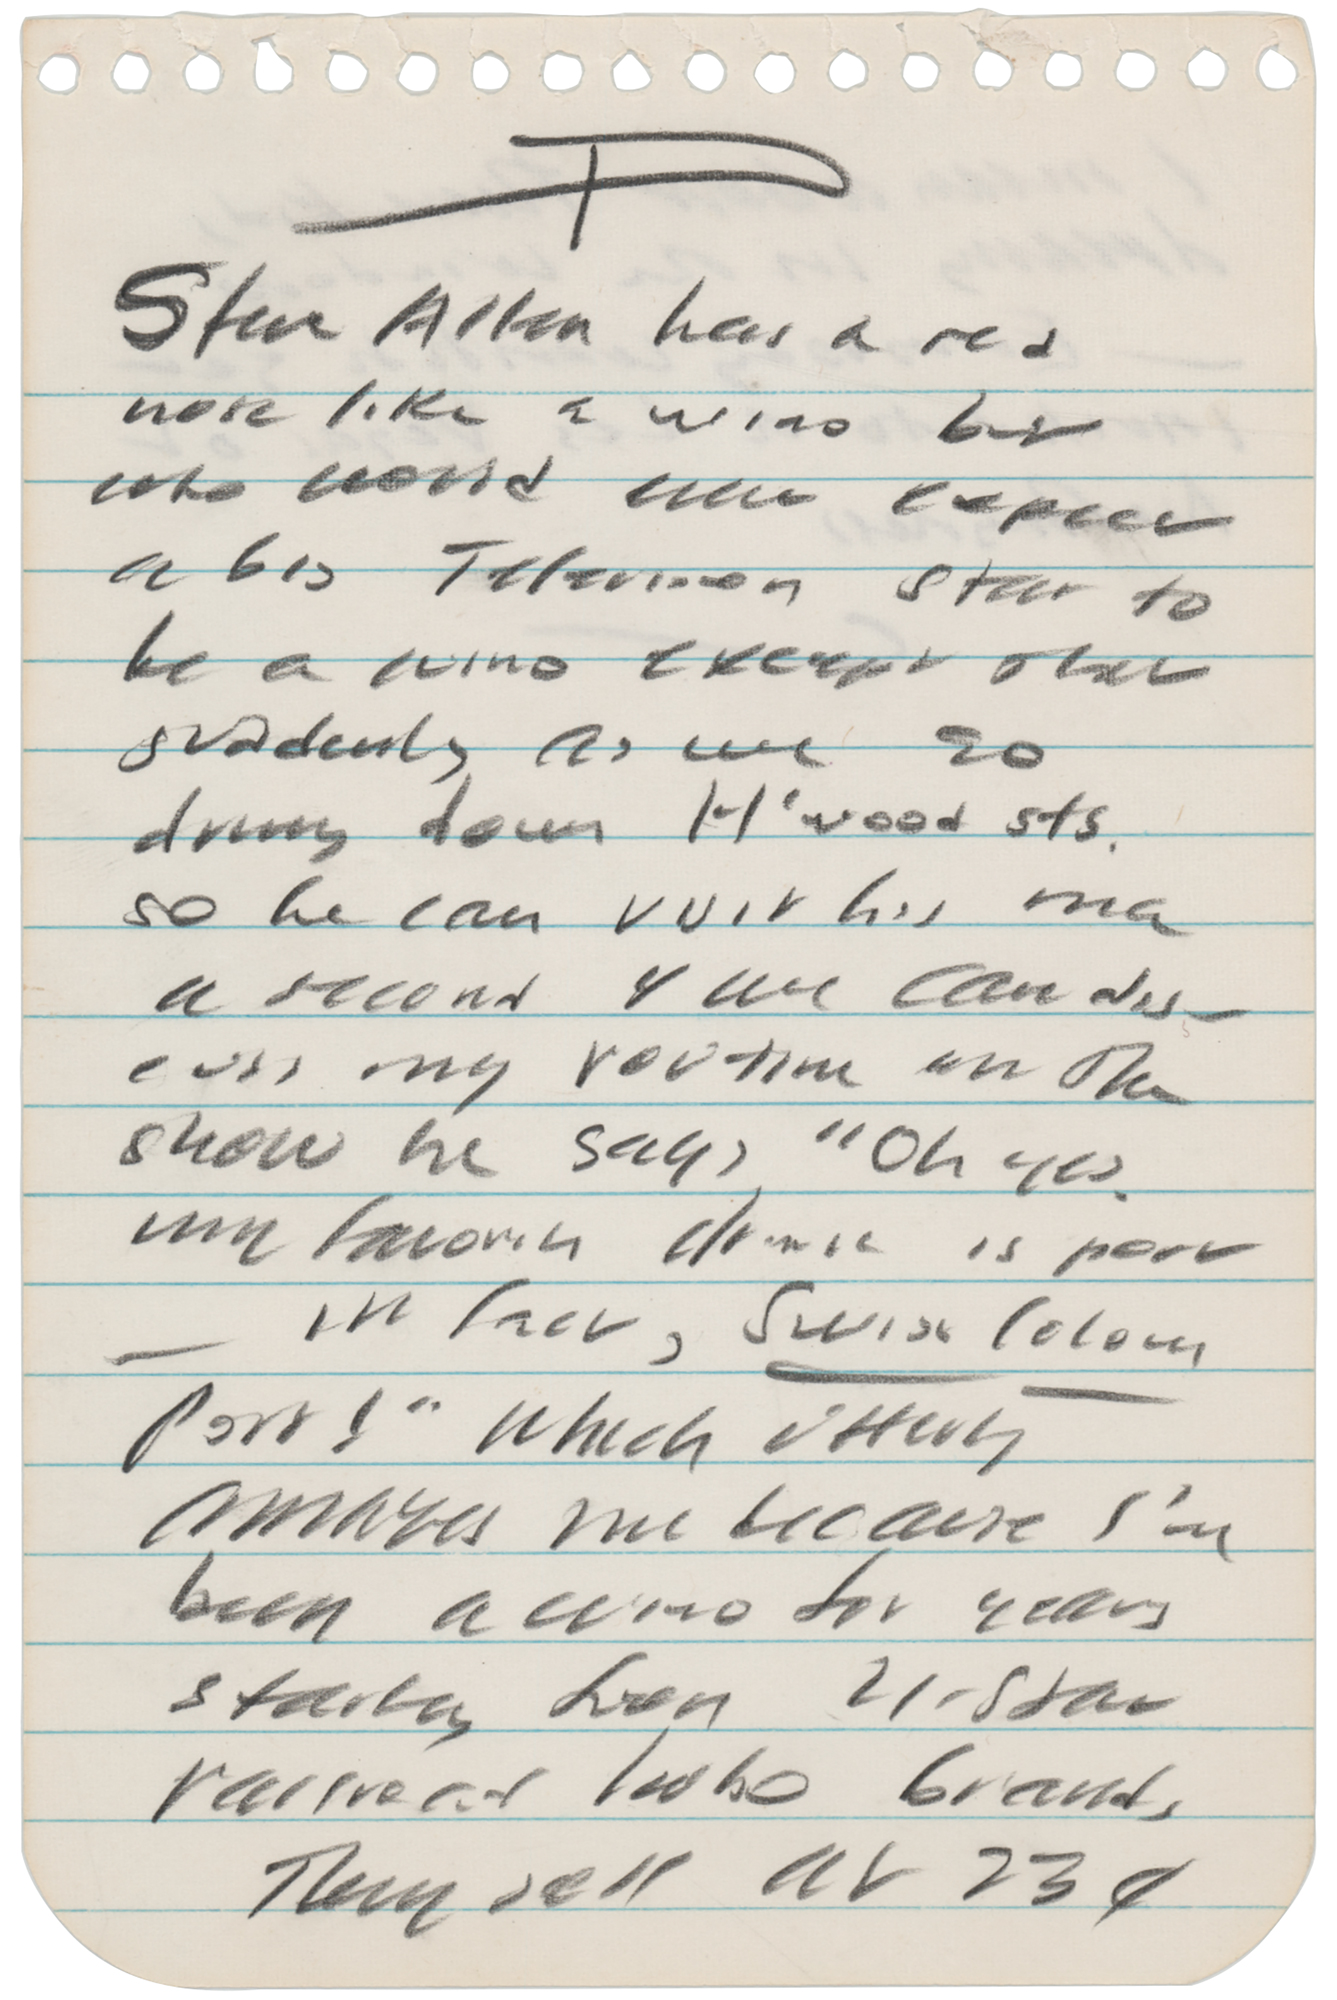 Steve Allen has a red
nose like a wino but
who would ever expect
a big Television star to
be a wino except that
suddenly as we go
driving down H'wood sts.
so he can visit his ma
a second & we can dis-
cuss my routine on the
show he says, "Oh yes,
my favorite drink is port
— in fact, Swiss Colony
Port!" Which utterly
amazes me because I've
been a wino for years
starting from 4-Star
railroad hobo brands
They sell at 23¢